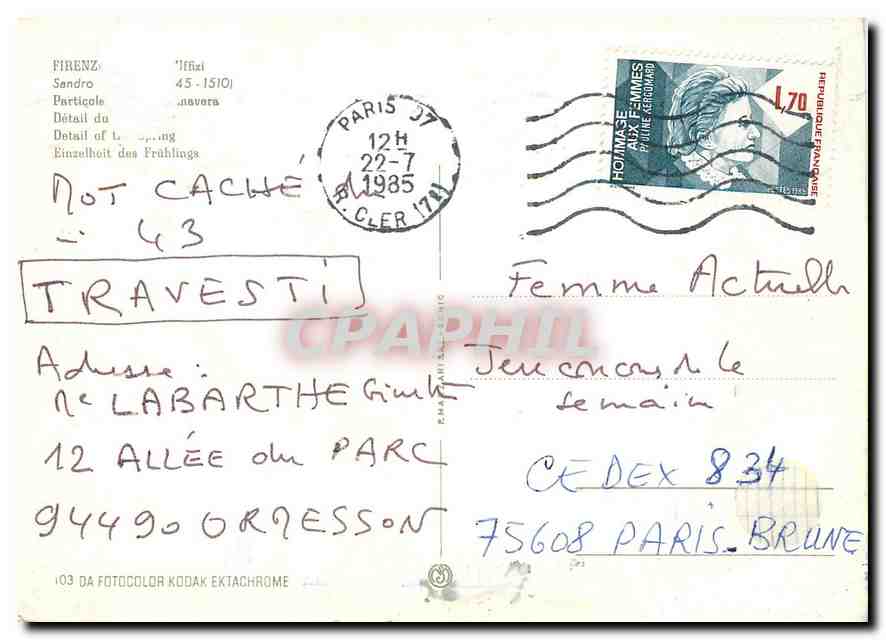 FIRENZ Uffizi
Sandro 45 - 1510)
Particole mavera
Détail du
Detail of t ing
Einzelheit des Frühlings
MOT CACHÉ
43
TRAVESTI
Adresse :
LABARTHE
12 ALLÉE du PARC
94490 ORMESSON
103 DA FOTOCOLOR KODAK EKTACHROME
PARIS 07
12H
22-7
1985
R. CLER (7E)
HOMMAGE
AUX FEMMES
PAULINE KERGOMARD
1,70
REPUBLIQUE FRANÇAISE
POSTES 1985
Femme Actuelle
Jeu concours de la
semaine
CEDEX 834
75608 PARIS-BRUNE
CPAPHIL